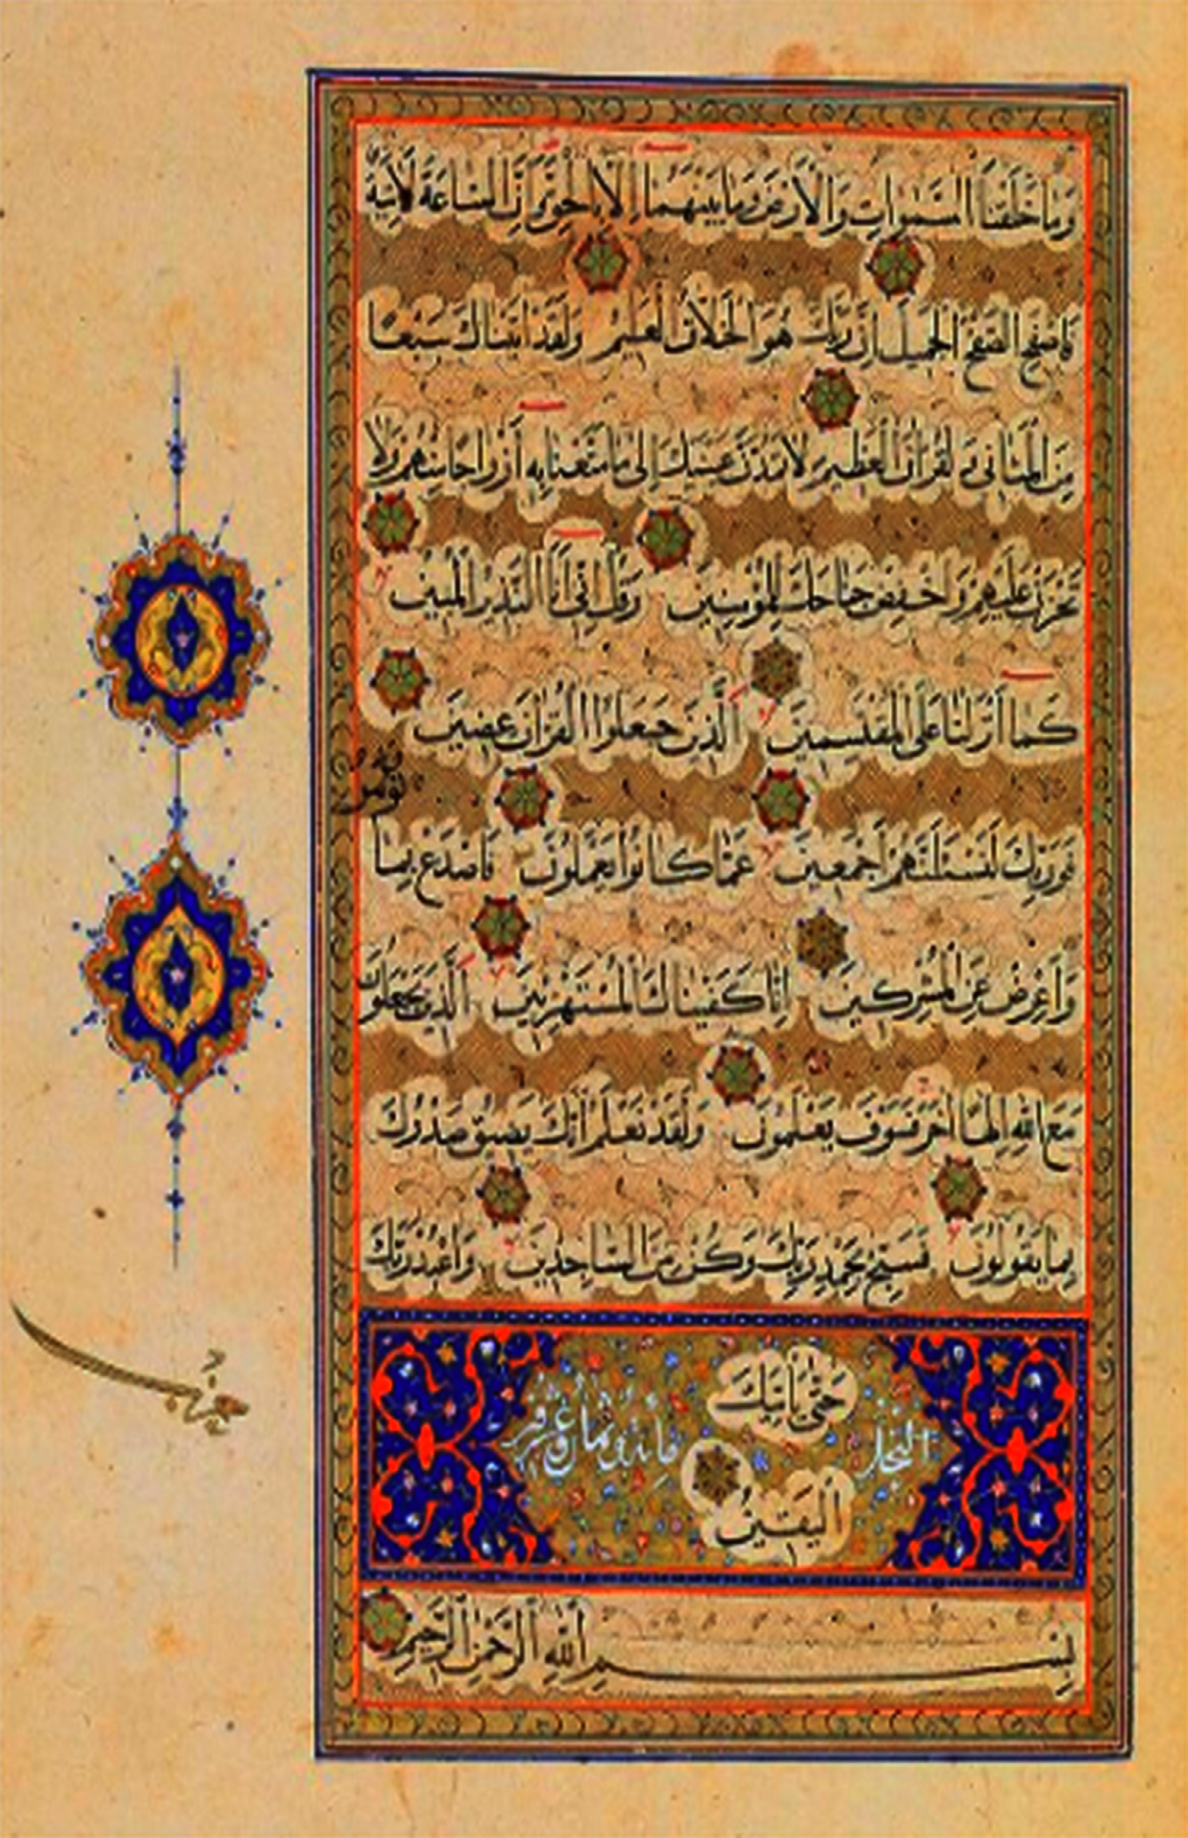 وَمَا خَلَقْنَا السَّمٰوَاتِ وَالْأَرْضَ وَمَا بَيْنَهُمَا إِلَّا بِالْحَقِّ وَإِنَّ السَّاعَةَ لَآتِيَةٌ
فَاصْفَحِ الصَّفْحَ الْجَمِيلَ إِنَّ رَبَّكَ هُوَ الْخَلَّاقُ الْعَلِيمُ وَلَقَدْ آتَيْنَاكَ سَبْعًا
مِنَ الْمَثَانِي وَالْقُرْآنَ الْعَظِيمَ لَا تَمُدَّنَّ عَيْنَيْكَ إِلَى مَا مَتَّعْنَا بِهِ أَزْوَاجًا مِنْهُمْ وَلَا
تَحْزَنْ عَلَيْهِمْ وَاخْفِضْ جَنَاحَكَ لِلْمُؤْمِنِينَ وَقُلْ إِنِّي أَنَا النَّذِيرُ الْمُبِينُ
كَمَا أَنْزَلْنَا عَلَى الْمُقْتَسِمِينَ الَّذِينَ جَعَلُوا الْقُرْآنَ عِضِينَ
تُؤْمَرُ
فَوَرَبِّكَ لَنَسْئَلَنَّهُمْ أَجْمَعِينَ عَمَّا كَانُوا يَعْمَلُونَ فَاصْدَعْ بِمَا
وَأَعْرِضْ عَنِ الْمُشْرِكِينَ إِنَّا كَفَيْنَاكَ الْمُسْتَهْزِئِينَ الَّذِينَ يَجْعَلُونَ
مَعَ اللّٰهِ إِلٰهًا آخَرَ فَسَوْفَ يَعْلَمُونَ وَلَقَدْ نَعْلَمُ أَنَّكَ يَضِيقُ صَدْرُكَ
بِمَا يَقُولُونَ فَسَبِّحْ بِحَمْدِ رَبِّكَ وَكُنْ مِنَ السَّاجِدِينَ وَاعْبُدْ رَبَّكَ
حَتَّى يَأْتِيَكَ
النحل
الْيَقِينُ
بِسْمِ اللّٰهِ الرَّحْمٰنِ الرَّحِيمِ